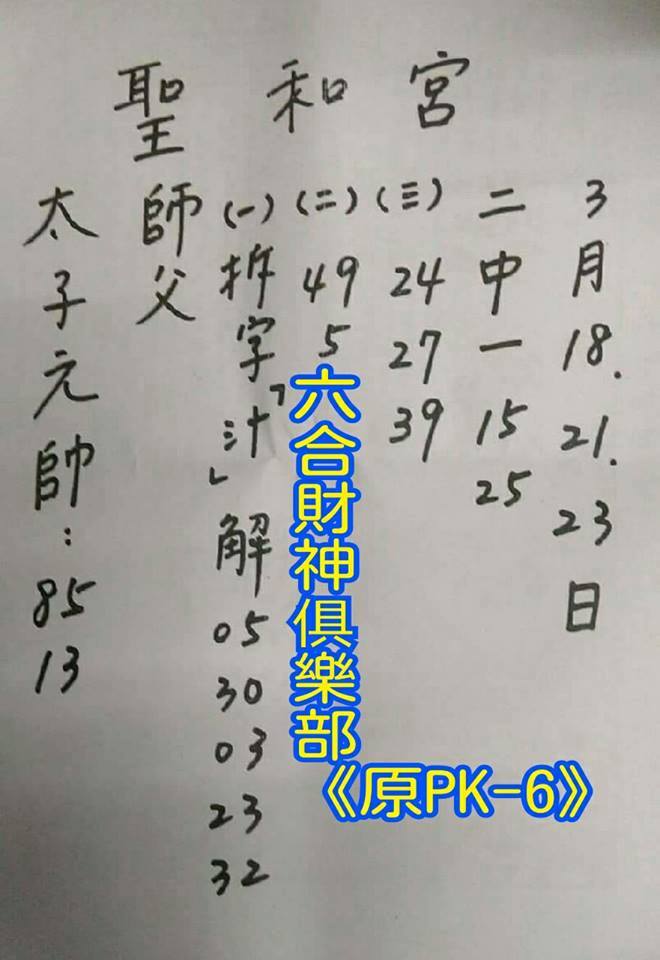 聖和宮
太子元帥：85 13
師父
(一)拆字「汁」解 05 30 03 23 32
(二) 49 5
(三) 24 27 39
二中一 15 25
3月18.21.23日
六合財神俱樂部
《原PK-6》